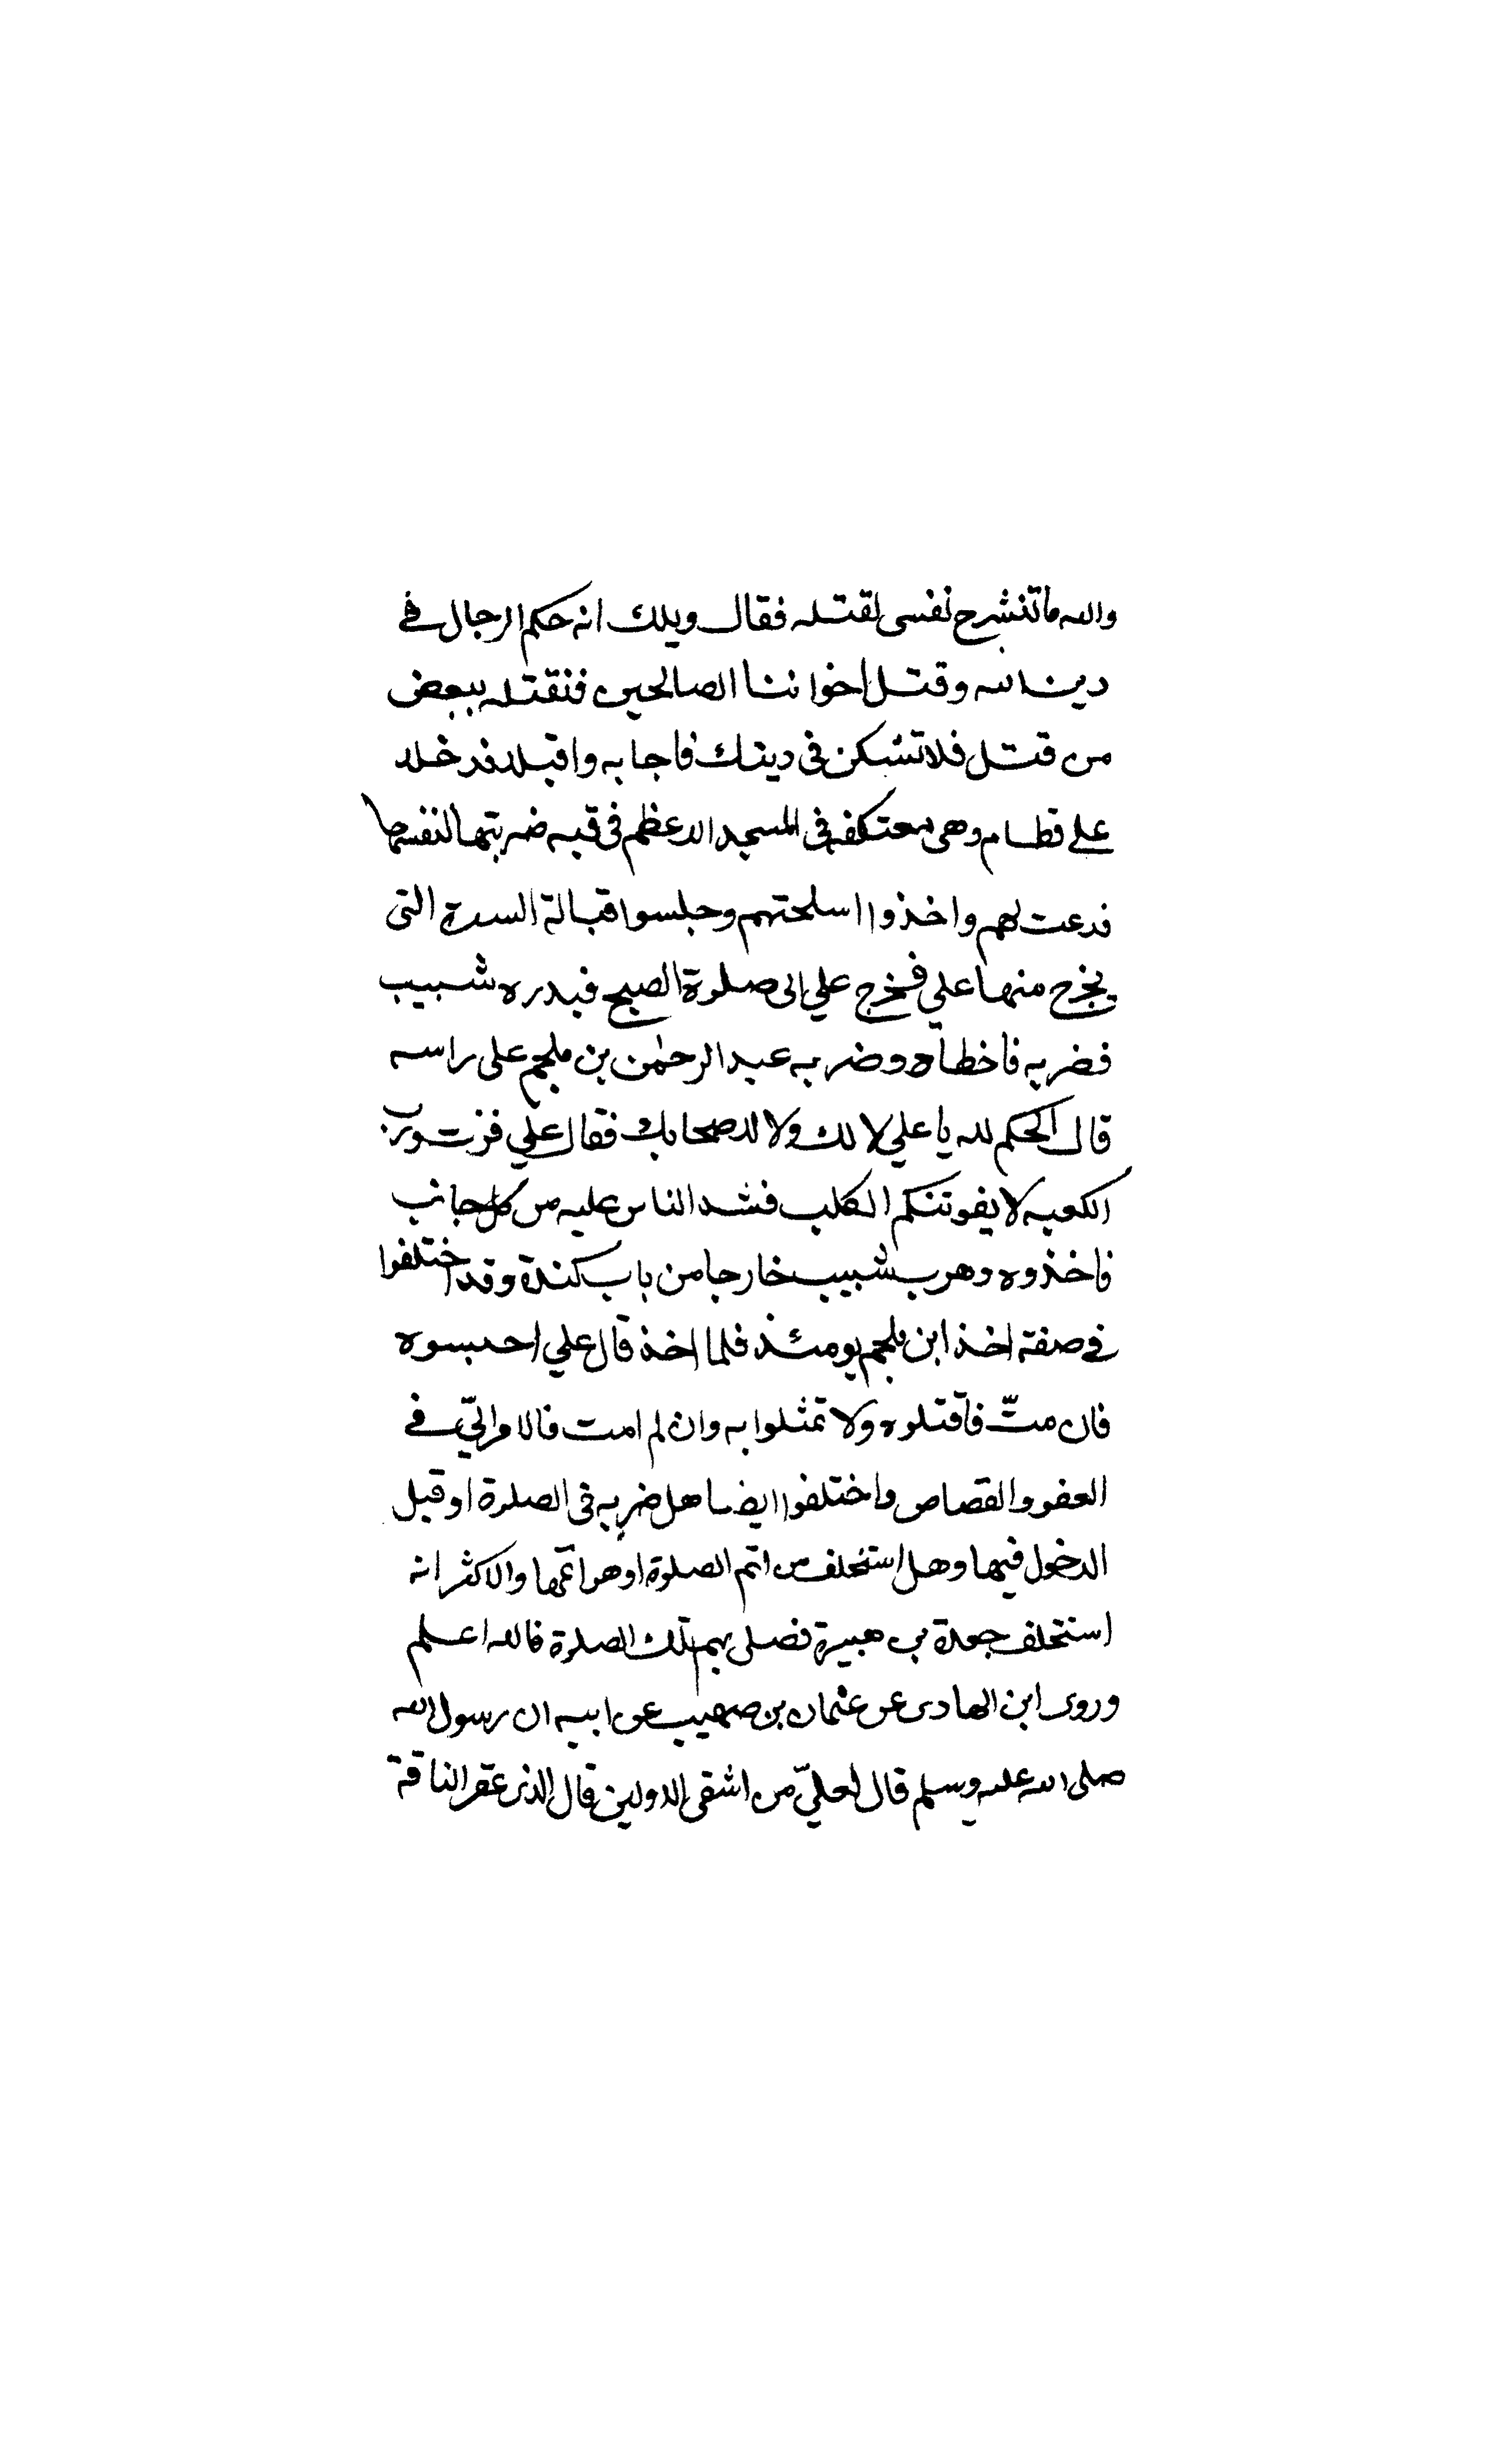 والله ما تنشرح نفسي لقتله فقال ويلك انه حكم الرجال في
دين الله وقتل اخواننا الصالحين فنقتله ببعض
من قتل فلا تشكن في دينك فاجابه واقبلا فدخلا
على قطام وهي معتكفه في المسجد الاعظم في قبه ضربتها لنفسها
فدعت لهم واخذوا اسلحتهم وجلسوا قبالة السدة التي
يخرج منها علي فخرج علي الى صلوة الصبح فبدره شبيب
فضربه فاخطأه وضربه عبد الرحمن بن ملجم على راسه
قال الحكم لله يا علي لا لك ولا لاصحابك فقال علي فزت ورب
الكعبه لا يفوتنكم الكلب فشد الناس عليه من كل جانب
فاخذوه وهرب شبيب خارجا من باب كندة وقد اختلفوا
في صفة اخذ ابن ملجم يومئذ فلما اخذ قال علي احبسوه
فان متّ فاقتلوه ولا تمثلوا به وان لم امت فالامر اليّ في
العفو والقصاص واختلفوا ايضا هل ضربه في الصلوة او قبل
الدخول فيها وهل استخلف من اتم الصلوة او هو اتمها والاكثر انه
استخلف جعدة بن هبيرة فصلى بهم تلك الصلوة فالله اعلم
وروى ابن الهادى عن عثمان بن صهيب عن ابيه ان رسول الله
صلى الله عليه وسلم قال لعليّ من اشقى الاولين قال الذى عقر الناقة